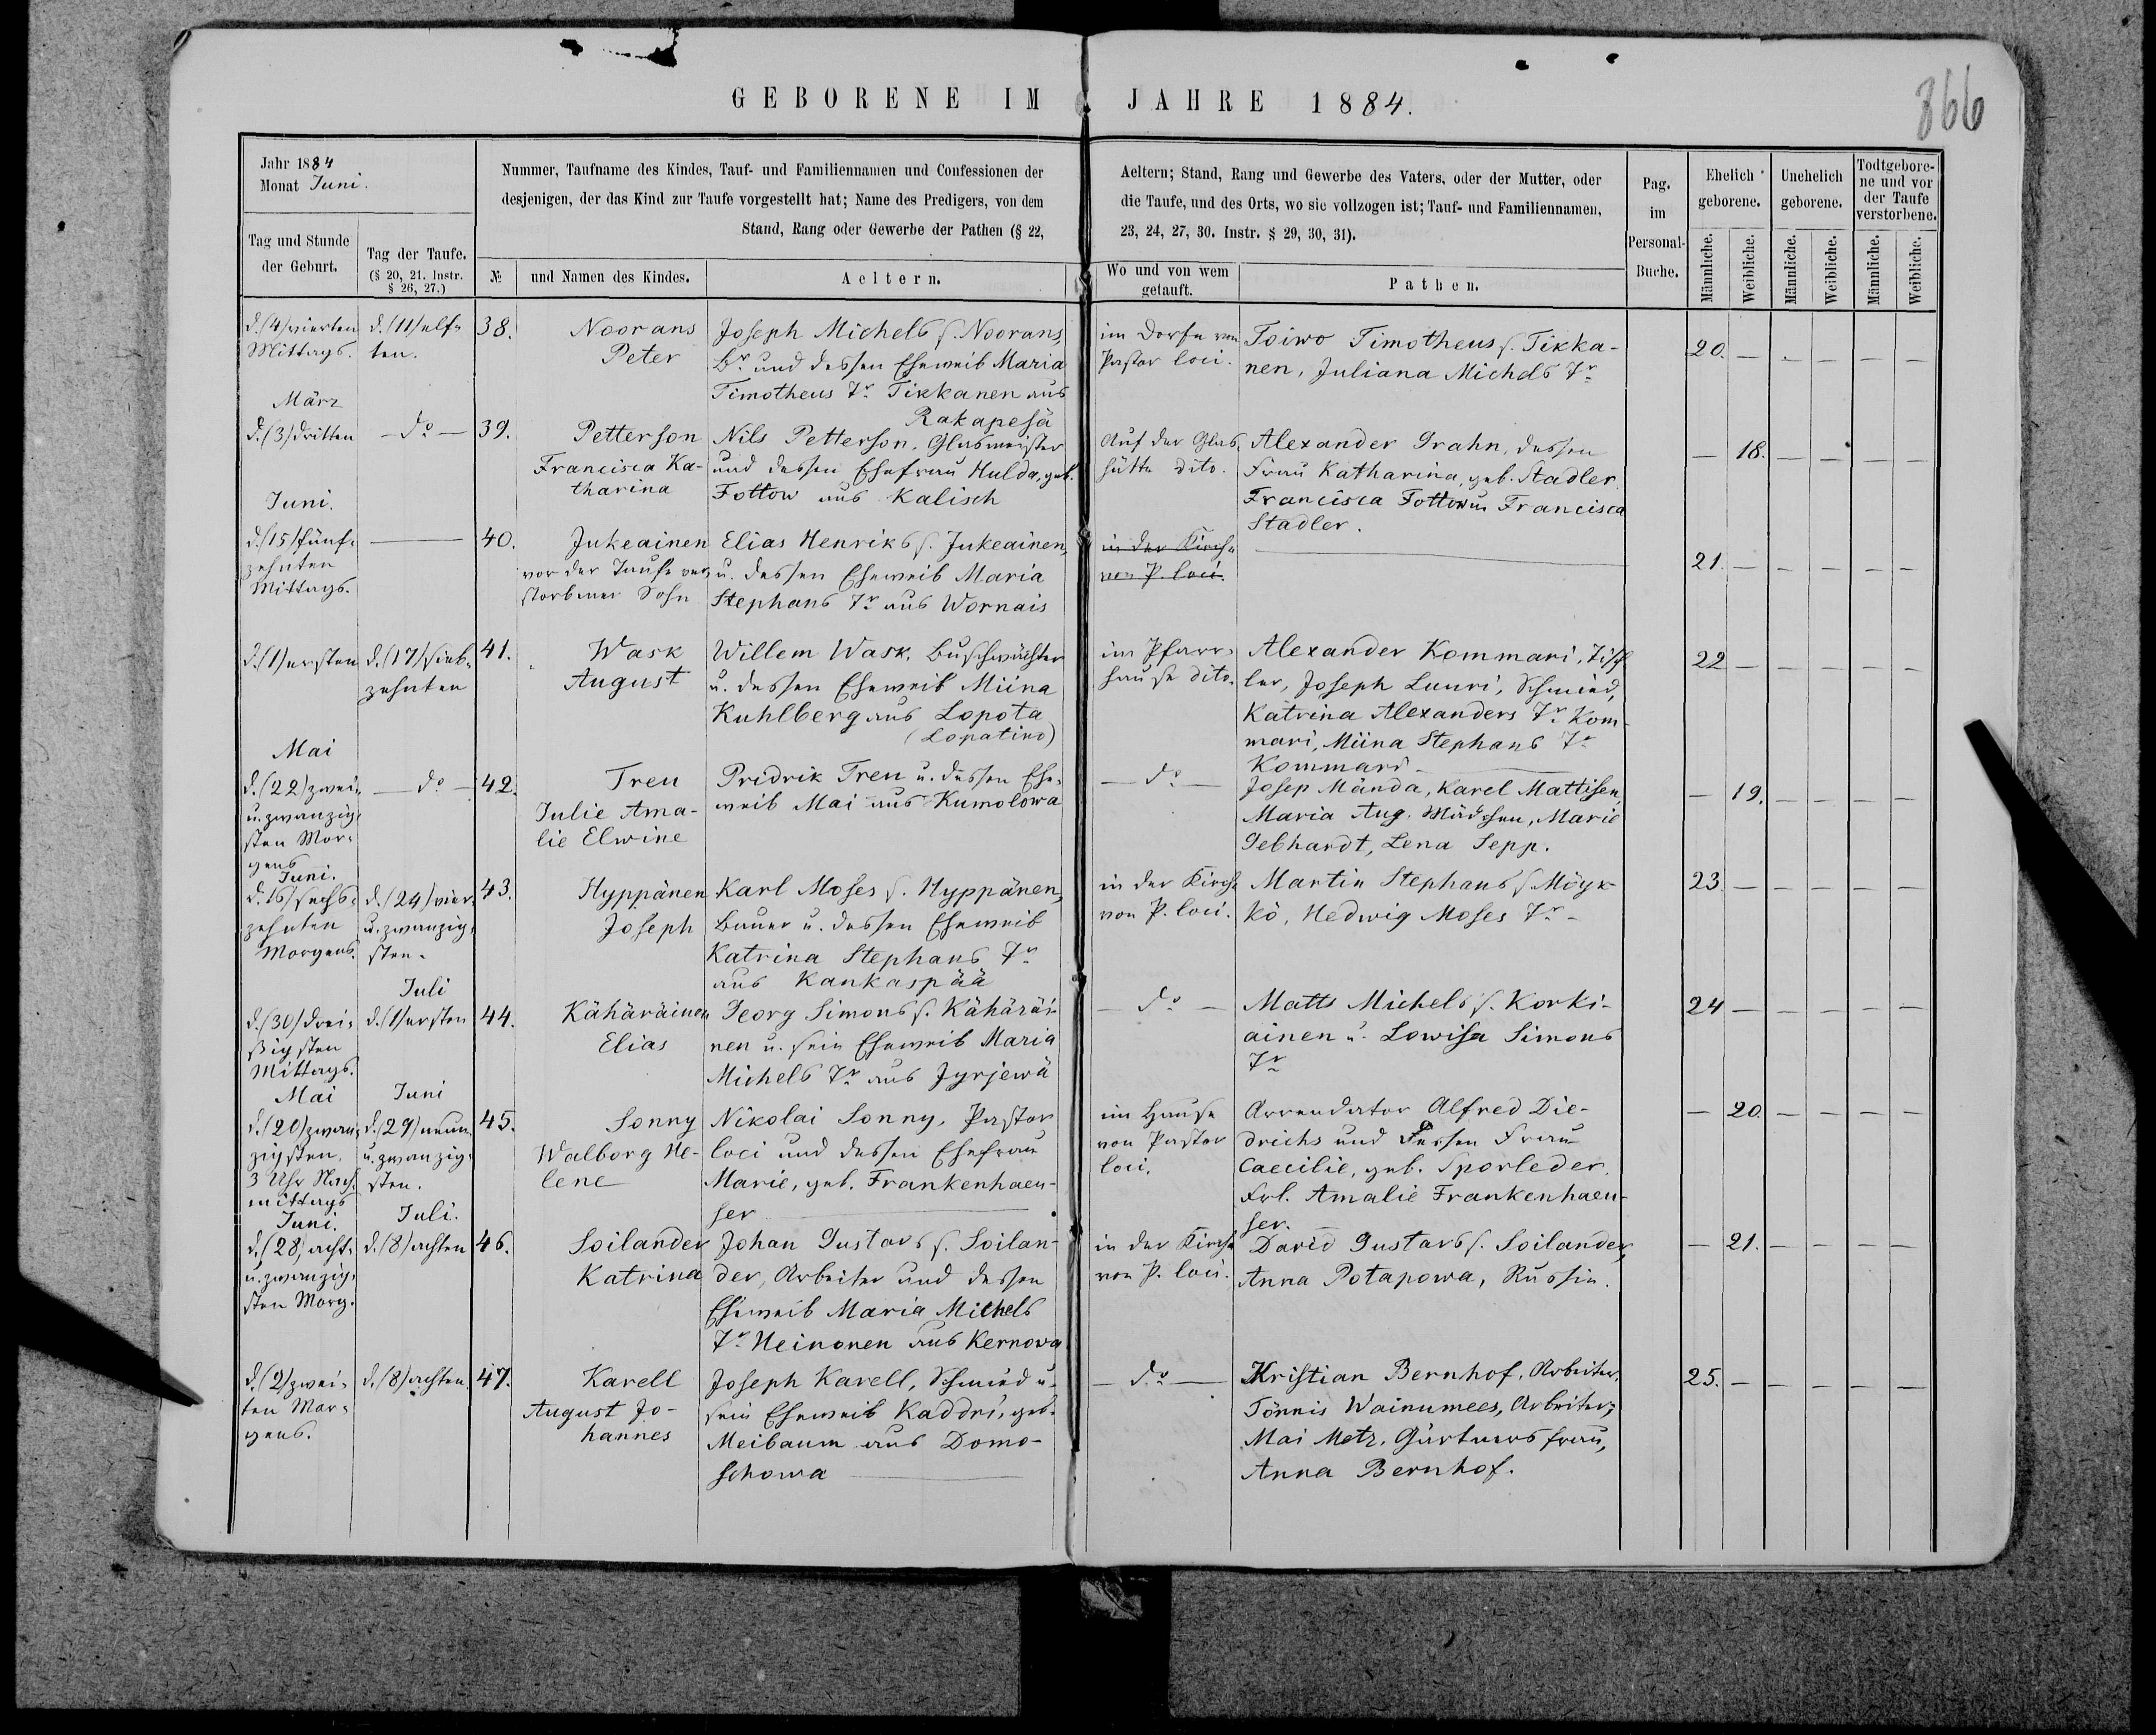 GEBORENE IM JAHRE 1884.
866
Jahr 1884
Monat Juni.
Nummer, Taufname des Kindes, Tauf- und Familiennamen und Confessionen der
desjenigen, der das Kind zur Taufe vorgestellt hat; Name des Predigers, von dem
Stand, Rang oder Gewerbe der Pathen (§ 22,
Aeltern; Stand, Rang und Gewerbe des Vaters, oder der Mutter, oder
die Taufe, und des Orts, wo sie vollzogen ist; Tauf- und Familiennamen,
23, 24, 27, 30. Instr. § 29, 30, 31).
Pag.
im
Personal-
Buche.
Ehelich
geborene.
Unehelich
geborene.
Todtgebore-
ne und vor
der Taufe
verstorbene.
Tag und Stunde
der Geburt.
Tag der Taufe.
(§ 20, 21. Instr.
§ 26, 27.)
№
und Namen des Kindes.
Aeltern.
Wo und von wem
getauft.
Pathen.
Männliche.
Weibliche.
Männliche.
Weibliche.
Männliche.
Weibliche.
d. (4) vierten
Mittags.
d. (11) elf-
ten.
38.
Noorans
Peter
Joseph Michels s. Noorans,
Br. und dessen Eheweib Maria
Timotheus Tr. Tikkanen aus
Rakapesä
im Dorfe von
Pastor loci.
Toiwo Timotheus s. Tikka-
nen, Juliana Michels Tr.
20. — — — — —
März
d. (3) dritten
— do —
39.
Petterson
Francisca Ka-
tharina
Nils Petterson, Glasmeister
und dessen Ehefrau Hulda, geb.
Fottow aus Kalisch
Auf der Glas-
hütte dito.
Alexander Grahn, dessen
Frau Katharina, geb. Stadler.
Francisca Fottow u. Francisca
Stadler.
— 18. — — — —
Juni.
d. (15) fünf-
zehnten
Mittags.
—
40.
Jukeainen
vor der Taufe ver-
storbener Sohn
Elias Henriks s. Jukeainen,
u. dessen Eheweib Maria
Stephans Tr. aus Wornais
in der Kirche
von P. loci.
—
21. — — — — —
d. (1) ersten
d. (17) sieb-
zehnten
41.
Wask
August
Willem Wask, Buschwächter
u. dessen Eheweib Miina
Kuhlberg aus Lopota
(Lopatino)
im Pfarr-
hause dito.
Alexander Kommari, Tisch-
ler, Joseph Luuri, Schmied,
Katrina Alexanders Tr. Kom-
mari, Miina Stephans Tr.
Kommari —
22 — — — — —
Mai
d. (22) zwei-
u. zwanzig-
sten Mor-
gens
— do —
42.
Treu
Julie Ama-
lie Elwine
Pridrik Treu u. dessen Ehe-
weib Mai aus Kumolowa
— do —
Josep Mända, Karel Mattisen,
Maria Aug. Mädchen, Marie
Gebhardt, Lena Sepp.
— 19. — — — —
Juni.
d. 16) sechs-
zehnten
Morgens.
d. (24) vier-
u. zwanzig-
sten.
43.
Hyppänen
Joseph
Karl Moses s. Hyppänen,
Bauer u. dessen Eheweib
Katrina Stephans Tr.
aus Kankaspää
in der Kirche
von P. loci.
Martin Stephans s. Möyk-
kö, Hedwig Moses Tr. —
23. — — — — —
d. (30) drei-
ßigsten
Mittags.
Juli
d. (1) ersten
44.
Kähäräinen
Elias
Georg Simons s. Kähäräi-
nen u. sein Eheweib Maria
Michels Tr. aus Jyrjewä
— do —
Matts Michels s. Korki-
ainen u. Lowisa Simons
Tr.
24 — — — — —
Mai
d. (20) zwan-
zigsten,
3 Uhr Nach-
mittags
Juni
d. (29) neun-
u. zwanzig-
sten.
45.
Sonny
Walborg He-
lene
Nikolai Sonny, Pastor
loci und dessen Ehefrau
Marie, geb. Frankenhaeu-
ser
im Hause
von Pastor
loci.
Arrendator Alfred Die-
drichs und dessen Frau
Caecilie, geb. Sporleder.
Frl. Amalie Frankenhaeu-
ser.
— 20. — — — —
Juni.
d. (28) acht-
u. zwanzig-
sten Morg.
Juli.
d. (8) achten
46.
Soilander
Katrina
Johan Gustavs s. Soilan-
der, Arbeiter und dessen
Eheweib Maria Michels
Tr. Heinonen aus Kernowa
in der Kirche
von P. loci.
David Gustavs s. Soilander,
Anna Potapowa, Russin.
— 21. — — — —
d. (2) zwei-
ten Mor-
gens.
d. (8) achten.
47.
Karell
August Jo-
hannes
Joseph Karell, Schmied u.
sein Eheweib Kaddri, geb.
Meibaum aus Domo-
schowa —
— do —
Kristian Bernhof, Arbeiter,
Tönnis Wainumees, Arbeiter,
Mai Metz, Gärtners frau,
Anna Bernhof.
25. — — — — —